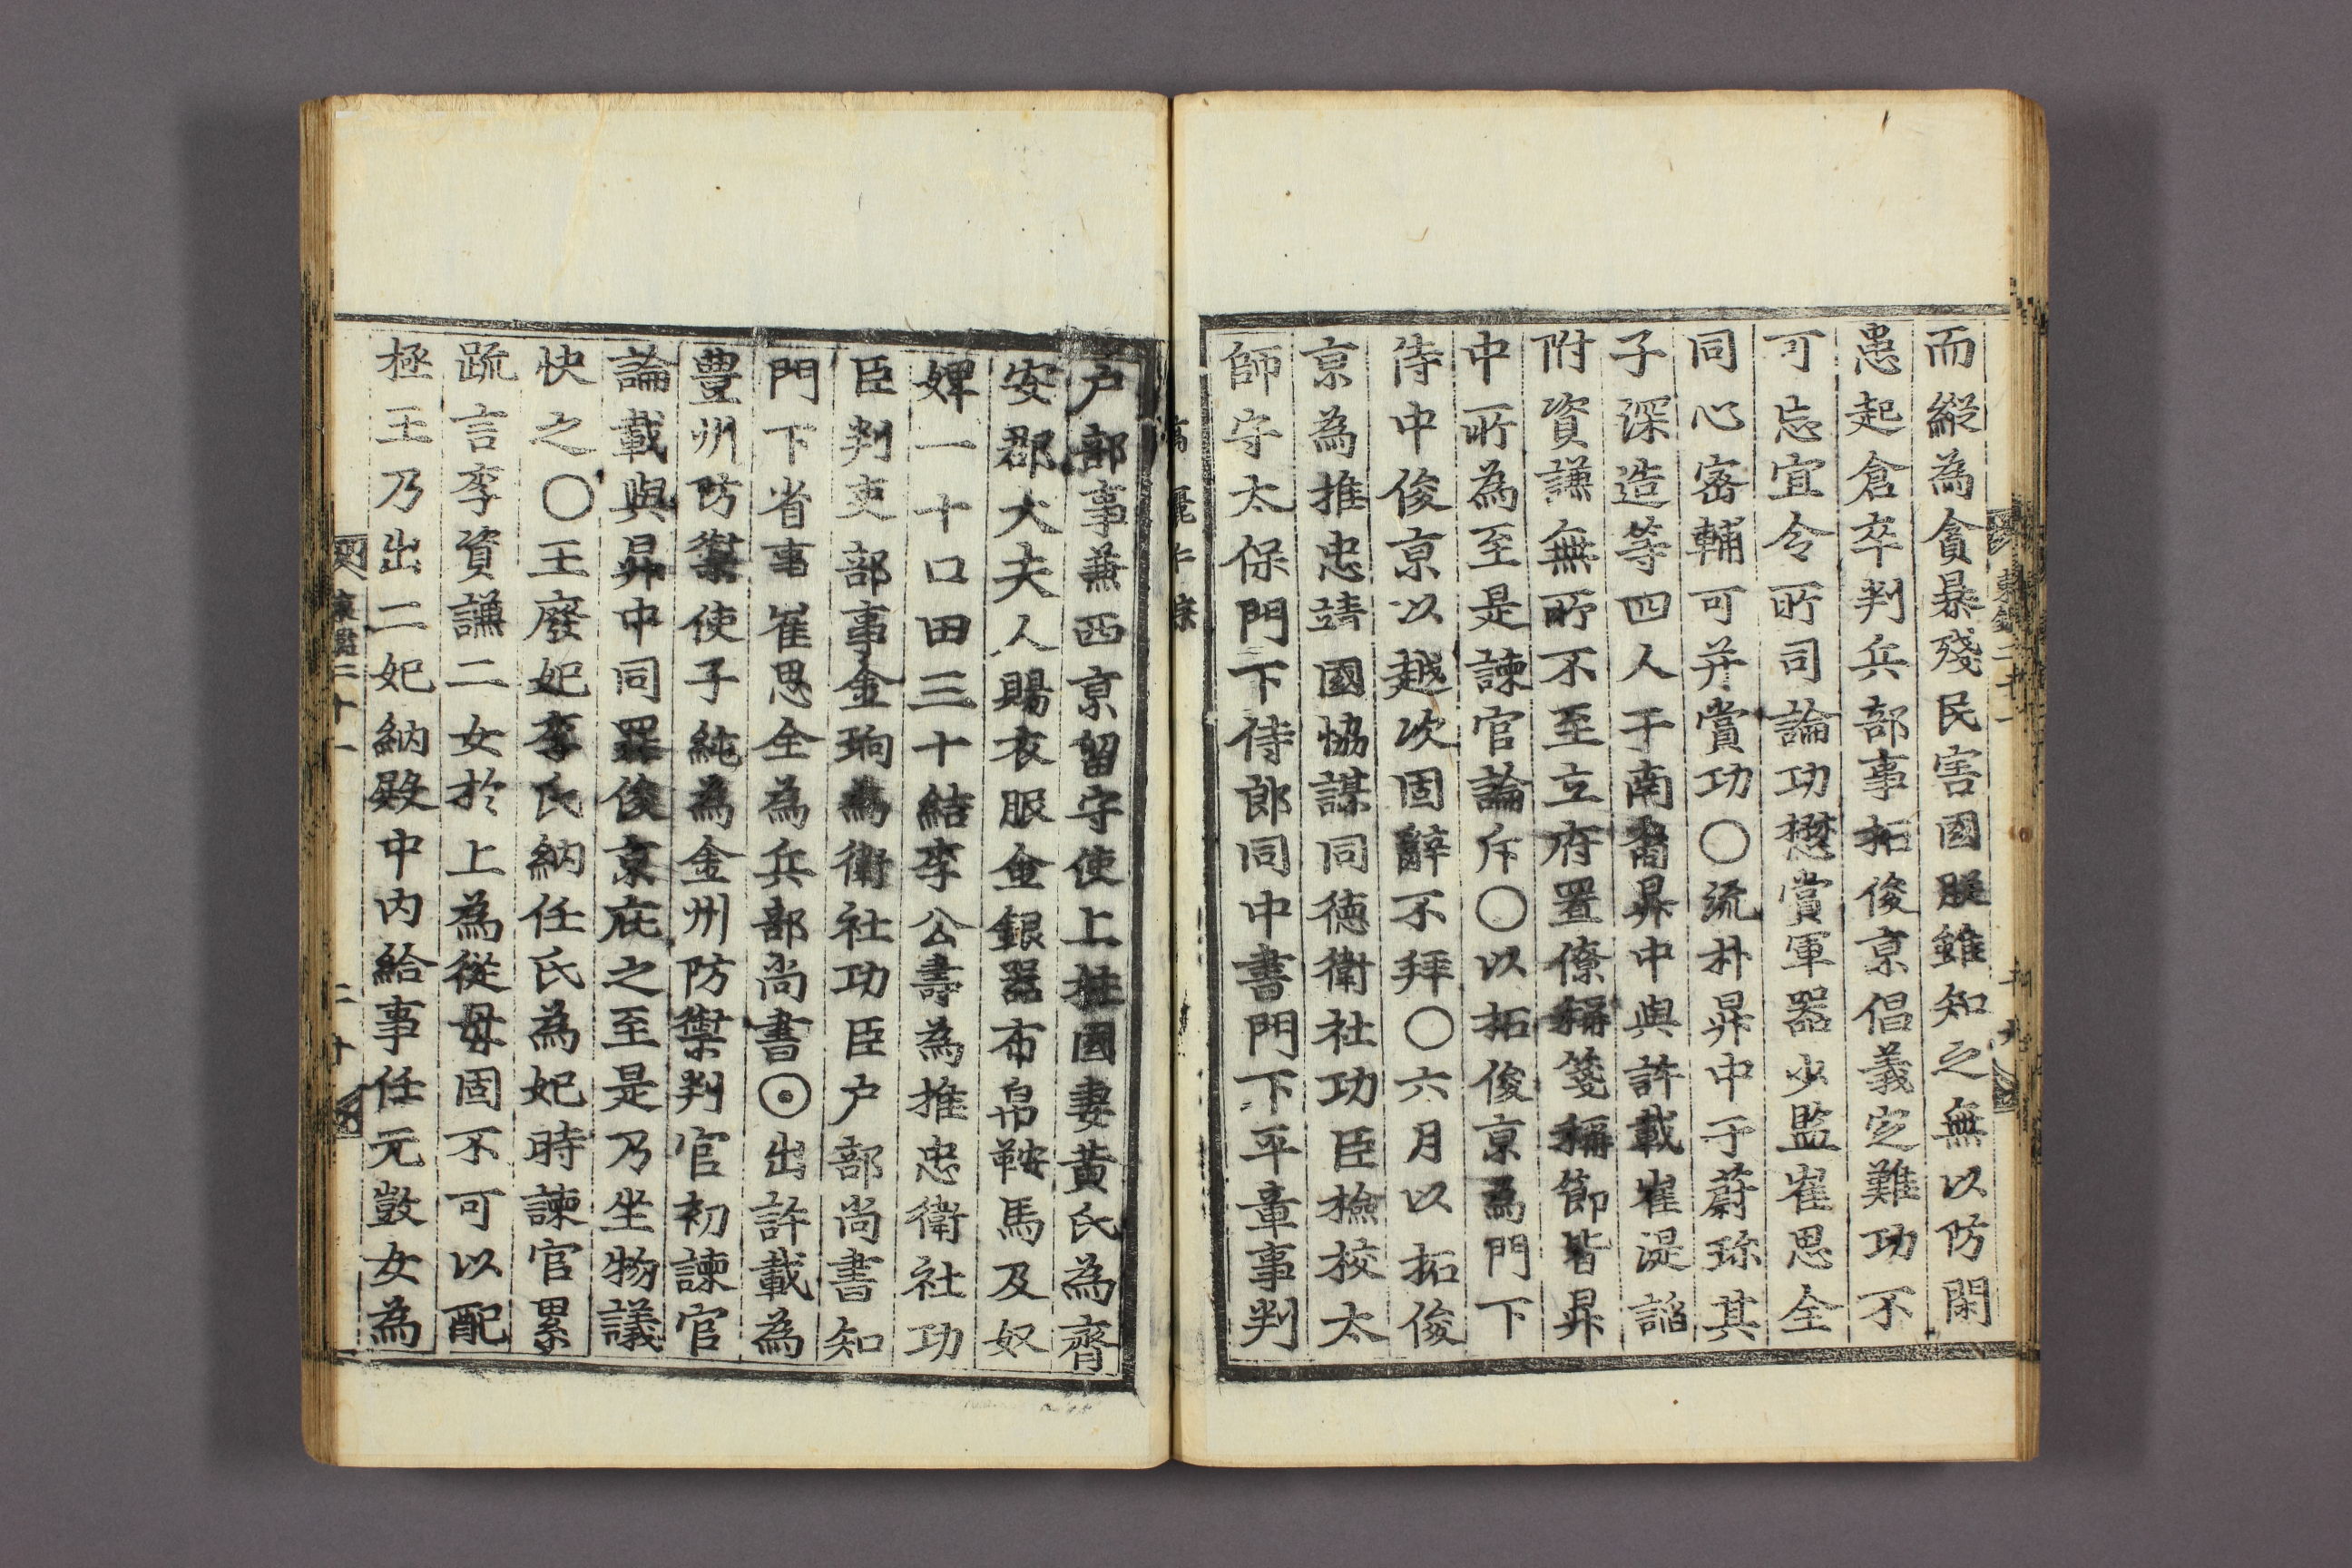 而縱為貪暴殘民害國朕雖知之無以防閑
患起倉卒判兵部事拓俊京倡義定難功不
可忘宜令所司論功懋賞軍器少監崔思全
同心密輔可并賞功○流朴昇中于蔚珍其
子深造等四人于南裔昇中與許載崔湜諂
附資謙無所不至立府置僚稱箋稱節皆昇
中所為至是諫官論斥○以拓俊京為門下
侍中俊京以越次固辭不拜○六月以拓俊
京為推忠靖國恊謀同德衛社功臣檢校太
師守太保門下侍郎同中書門下平章事判
户部事兼西京留守使上柱國妻黃氏為齊
安郡大夫人賜衣服金銀器布帛鞍馬及奴
婢一十口田三十結李公壽為推忠衛社功
臣判吏部事金珦為衛社功臣户部尚書知
門下省事崔思全為兵部尚書⊙出許載為
豊州防禦使子純為金州防禦判官初諫官
論載與昇中同罪俊京庇之至是乃坐物議
快之○王廢妃李氏納任氏為妃時諫官累
䟽言李資謙二女於上為從母固不可以配
極王乃出二妃納殿中內給事任元敱女為
東鑑二十一
二十